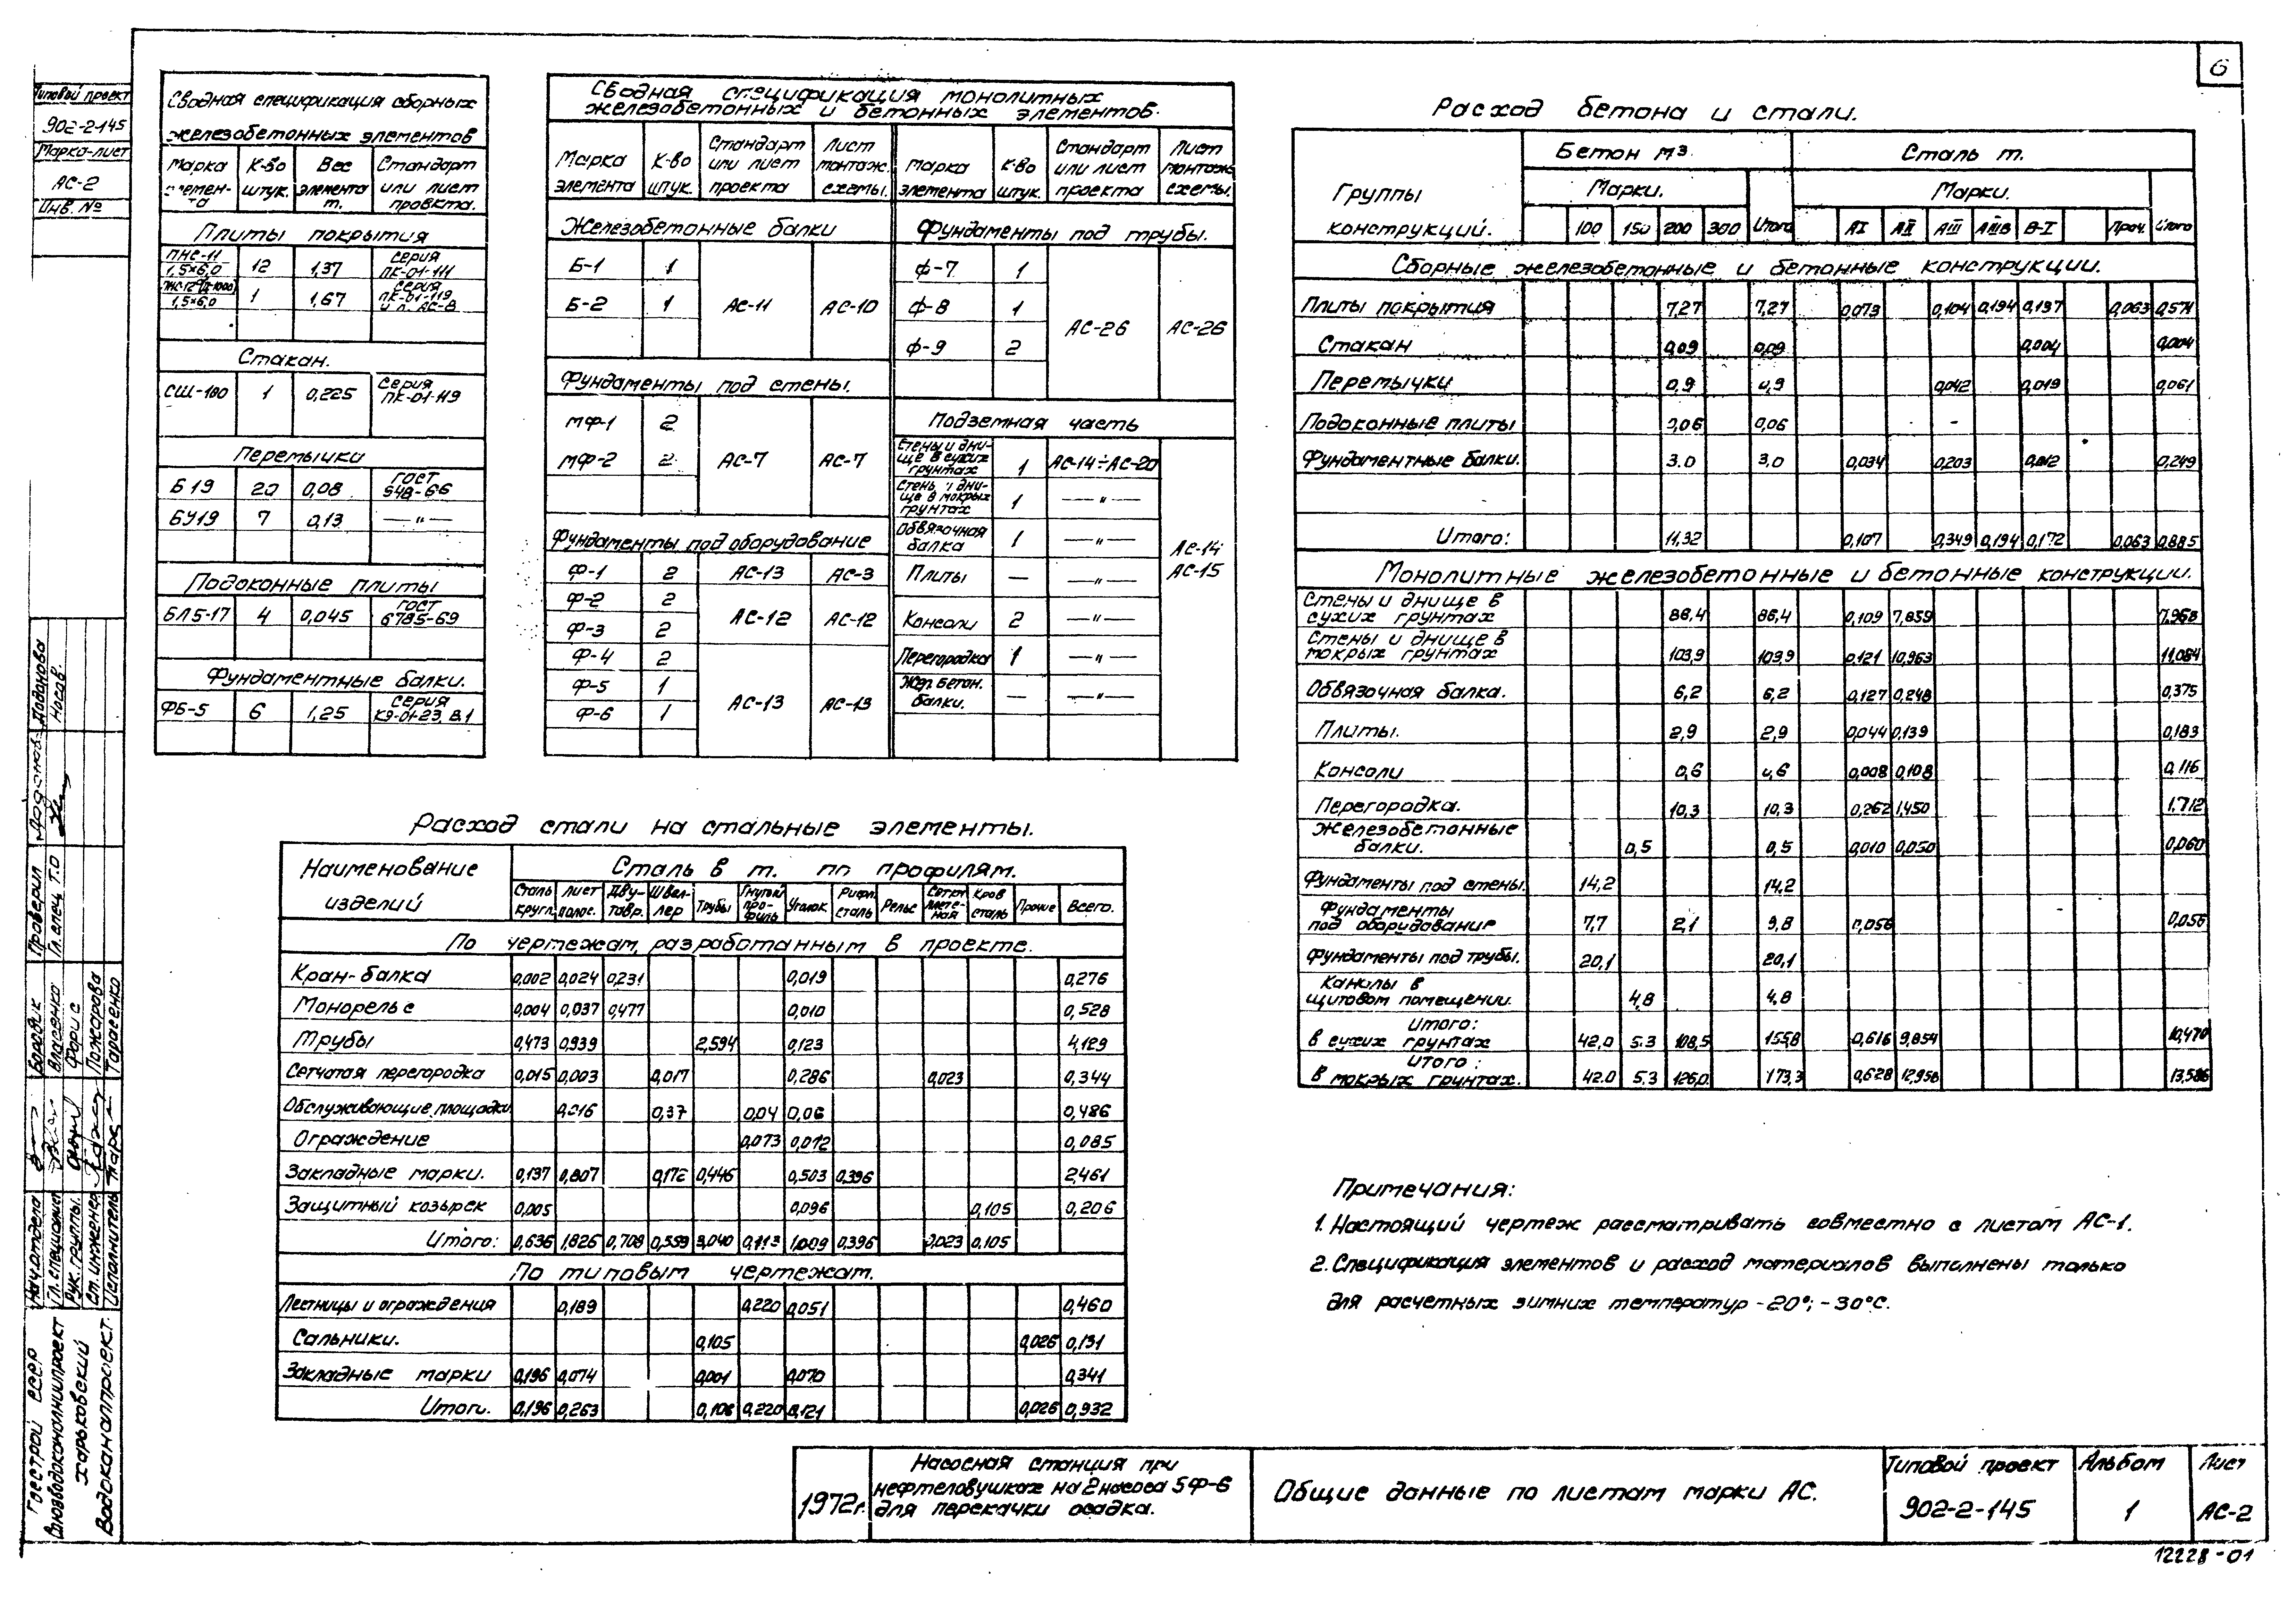 6
Типовой проект
902-2-145
Марка-лист
АС-2
Инв. №
Сводная спецификация сборных
железобетонных элементов
Марка элемен-та | К-во штук. | Вес элемента т. | Стандарт или лист проекта.
Плиты покрытия
ПНС-11 1,5×6,0 | 12 | 1,37 | серия ПК-01-111
1,5×6,0 | 1 | 1,67 | серия ПК-01-119 и л. АС-8
Стакан.
СШ-100 | 1 | 0,225 | серия ПК-01-119
Перемычки
Б 19 | 20 | 0,08 | ГОСТ 948-66
БУ19 | 7 | 0,13 | —"—
Подоконные плиты
БЛ5-17 | 4 | 0,045 | ГОСТ 6785-69
Фундаментные балки.
ФБ-5 | 6 | 1,25 | серия КЭ-01-23, В.1
Сводная спецификация монолитных
железобетонных и бетонных элементов.
Марка элемента | К-во штук. | Стандарт или лист проекта | Лист монтаж. схемы. | Марка элемента | К-во штук. | Стандарт или лист проекта | Лист монтаж. схемы.
Железобетонные балки
Б-1 | 1
Б-2 | 1 | АС-11 | АС-10
Фундаменты под стены.
МФ-1 | 2
МФ-2 | 2 | АС-7 | АС-7
Фундаменты под оборудование
Ф-1 | 2 | АС-13 | АС-3
Ф-2 | 2
Ф-3 | 2 | АС-12 | АС-12
Ф-4 | 2
Ф-5 | 1
Ф-6 | 1 | АС-13 | АС-13
Фундаменты под трубы.
Ф-7 | 1
Ф-8 | 1 | АС-26 | АС-26
Ф-9 | 2
Подземная часть
Стены и дни-ще в сухих грунтах | 1 | АС-14÷АС-20
Стены и дни-ще в мокрых грунтах | 1 | —"—
Обвязочная балка | 1 | —"— | АС-14 АС-15
Плиты | — | —"—
Консоли | 2 | —"—
Перегородка | 1 | —"—
Жел. бетон. балки. | — | —"—
Расход стали на стальные элементы.
Наименование изделий | Сталь в т. по профилям.
Сталь кругл. | Лист полос. | Дву-тавр. | Швел-лер | Трубы | Гнутый про-филь | Уголок | Рифл. сталь | Рельс | Сетка плете-ная | Кров сталь | Прочие | Всего.
По чертежам, разработанным в проекте.
Кран-балка | 0,002 | 0,024 | 0,231 | 0,019 | 0,276
Монорельс | 0,004 | 0,037 | 0,477 | 0,010 | 0,528
Трубы | 0,473 | 0,939 | 2,594 | 0,123 | 4,129
Сетчатая перегородка | 0,015 | 0,003 | 0,017 | 0,286 | 0,023 | 0,344
Обслуживающие площадки | 0,016 | 0,37 | 0,04 | 0,06 | 0,486
Ограждение | 0,073 | 0,012 | 0,085
Закладные марки. | 0,137 | 0,807 | 0,172 | 0,446 | 0,503 | 0,396 | 2,461
Защитный козырек | 0,005 | 0,096 | 0,105 | 0,206
Итого: | 0,636 | 1,826 | 0,708 | 0,559 | 3,040 | 0,113 | 1,009 | 0,396 | 0,023 | 0,105
По типовым чертежам.
Лестницы и ограждения | 0,189 | 0,220 | 0,051 | 0,460
Сальники. | 0,105 | 0,026 | 0,131
Закладные марки | 0,196 | 0,074 | 0,001 | 0,070 | 0,341
Итого. | 0,196 | 0,263 | 0,106 | 0,220 | 0,121 | 0,026 | 0,932
Расход бетона и стали.
Группы конструкций. | Бетон м3. | Сталь т.
Марки. | Марки.
100 | 150 | 200 | 300 | Итого | АI | АII | АIII | АIIIВ | В-I | Проч. | Итого
Сборные железобетонные и бетонные конструкции.
Плиты покрытия | 7,27 | 7,27 | 0,073 | 0,104 | 0,194 | 0,137 | 0,063 | 0,571
Стакан | 0,09 | 0,09 | 0,004 | 0,004
Перемычки | 0,9 | 0,9 | 0,042 | 0,019 | 0,061
Подоконные плиты | 0,06 | 0,06 | -
Фундаментные балки. | 3.0 | 3,0 | 0,034 | 0,203 | 0,012 | 0,249
Итого: | 11,32 | 0,107 | 0,349 | 0,194 | 0,172 | 0,063 | 0,885
Монолитные железобетонные и бетонные конструкции.
Стены и днище в сухих грунтах | 86,4 | 86,4 | 0,109 | 7,859 | 7,968
Стены и днище в мокрых грунтах | 103,9 | 103,9 | 0,121 | 10,963 | 11,084
Обвязочная балка. | 6,2 | 6,2 | 0,127 | 0,248 | 0,375
Плиты. | 2,9 | 2,9 | 0,044 | 0,139 | 0,183
Консоли | 0,6 | 0,6 | 0,008 | 0,108 | 0,116
Перегородка. | 10,3 | 10,3 | 0,262 | 1,450 | 1,712
Железобетонные балки. | 0,5 | 0,5 | 0,010 | 0,050 | 0,060
Фундаменты под стены. | 14,2 | 14,2
Фундаменты под оборудование | 7,7 | 2,1 | 9,8 | 0,056 | 0,056
Фундаменты под трубы. | 20,1 | 20,1
Каналы в щитовом помещении. | 4,8 | 4,8
Итого: в сухих грунтах | 42,0 | 5.3 | 108,5 | 155,8 | 0,616 | 9,854 | 10,470
Итого: в мокрых грунтах. | 42.0 | 5.3 | 126,0 | 173,3 | 0,628 | 12,958 | 13,586
Примечания:
1. Настоящий чертеж рассматривать совместно с листом АС-1.
2. Спецификация элементов и расход материалов выполнены только
для расчетных зимних температур -20°; -30°С.
Госстрой СССР
Союзводоканалниипроект
Харьковский
Водоканалпроект.
Нач. отдела
Гл. специалист
Рук. группы.
Ст. инженер
Исполнитель
Бородик
Власенко
Форис
Пожарова
Тарасенко
Проверил
Гл. спец. Т.О
Додонова
Носов.
1972г.
Насосная станция при
нефтеловушках на 2 насоса 5Ф-6
для перекачки осадка.
Общие данные по листам марки АС.
Типовой проект
902-2-145
Альбом
1
Лист
АС-2
12228-01